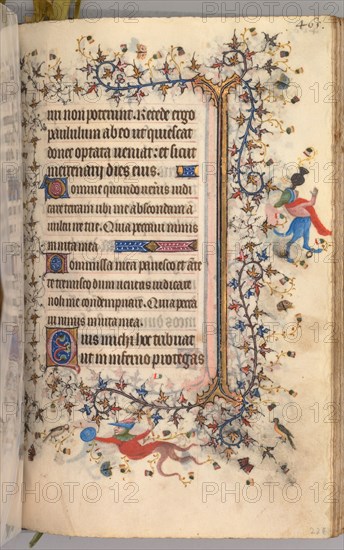 461.
ri non poterunt. Recede ergo
paululum ab eo ut quiescat
donec optata veniat: et sicut
mercenarij dies eius.
Domine quando veneris iudi
care terram ubi me abscondam a
vultu ire tue. Quia peccavi nimis
in vita mea.
Commissa mea pavesco et an
te te erubesco dum veneris iudicare
noli me condempnare. Quia pecca
vi nimis in vita mea.
Quis michi hoc tribuat
ut in inferno protegas
PHOTO12